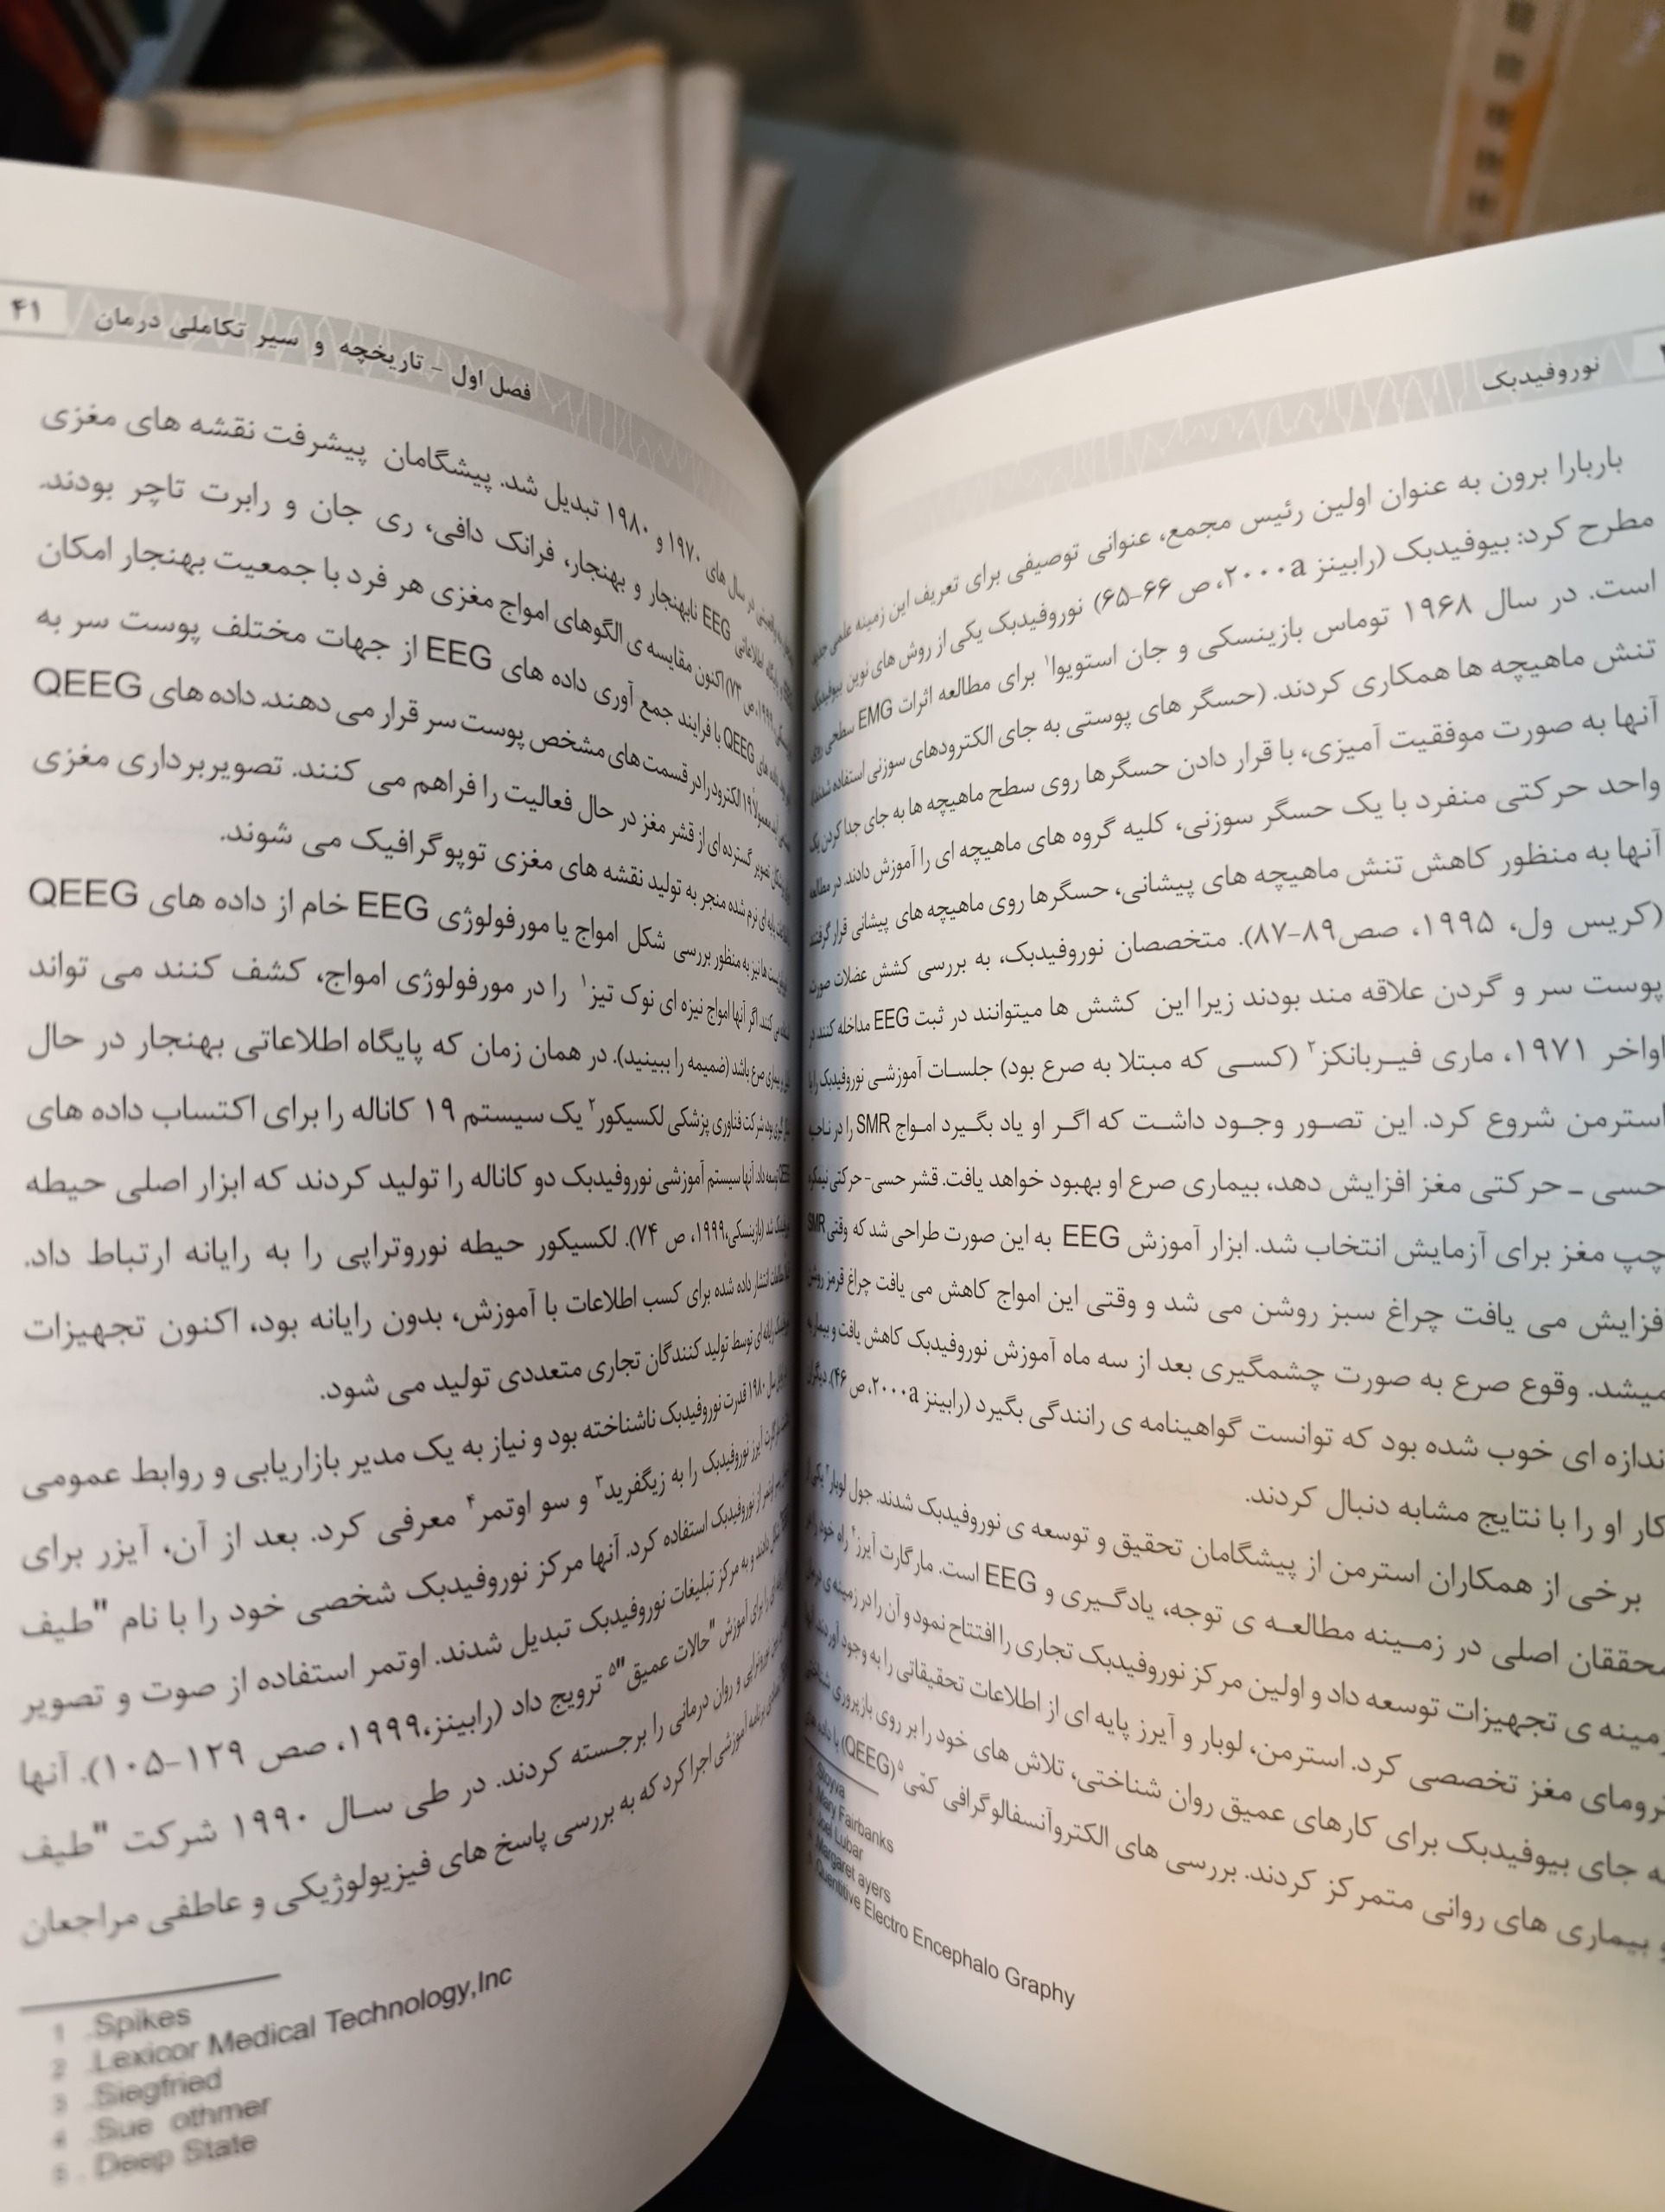 نوروفیدبک
باربارا برون به عنوان اولین رئیس مجمع، عنوانی توصیفی برای تعریف این زمینه علمی
مطرح کرد: بیوفیدبک (رابینز ۲۰۰۰a، ص ۶۶-۶۵) نوروفیدبک یکی از روش های نوین بیوفیدبک
است. در سال ۱۹۶۸ توماس بازینسکی و جان استویوا۱ برای مطالعه اثرات EMG سطحی روی
تنش ماهیچه ها همکاری کردند. (حسگر های پوستی به جای الکترودهای سوزنی استفاده شدند)
آنها به صورت موفقیت آمیزی، با قرار دادن حسگرها روی سطح ماهیچه ها به جای جدا کردن یک
واحد حرکتی منفرد با یک حسگر سوزنی، کلیه گروه های ماهیچه ای را آموزش دادند. در مطالعه
آنها به منظور کاهش تنش ماهیچه های پیشانی، حسگرها روی ماهیچه های پیشانی قرار گرفتند
(کریس ول، ۱۹۹۵، صص۸۹-۸۷). متخصصان نوروفیدبک، به بررسی کشش عضلات صورت
پوست سر و گردن علاقه مند بودند زیرا این کشش ها میتوانند در ثبت EEG مداخله کنند. در
اواخر ۱۹۷۱، ماری فیـربانکز۲ (کسـی که مبتلا به صرع بود) جلسـات آموزشـی نوروفیدبک را با
استرمن شروع کرد. این تصـور وجـود داشـت که اگـر او یاد بگـیرد امـواج SMR را در ناحیه
حسی ـ حرکتی مغز افزایش دهد، بیماری صرع او بهبود خواهد یافت. قشر حسی- حرکتی نیمکره
چپ مغز برای آزمایش انتخاب شد. ابزار آموزش EEG به این صورت طراحی شد که وقتی SMR
افزایش می یافت چراغ سبز روشن می شد و وقتی این امواج کاهش می یافت چراغ قرمز روشن
میشد. وقوع صرع به صورت چشمگیری بعد از سه ماه آموزش نوروفیدبک کاهش یافت و بیمار به
اندازه ای خوب شده بود که توانست گواهینامه ی رانندگی بگیرد (رابینز ۲۰۰۰a، ص ۴۶). دیگران
کار او را با نتایج مشابه دنبال کردند.
برخی از همکاران استرمن از پیشگامان تحقیق و توسعه ی نوروفیدبک شدند. جول لوبار۳ یکی از
محققان اصلی در زمـینه مطالعـه ی توجه، یادگـیری و EEG است. مارگارت آیرز۴ راه خود را در
زمینه ی تجهیزات توسعه داد و اولین مرکز نوروفیدبک تجاری را افتتاح نمود و آن را در زمینه ی درمان
ترومای مغز تخصصی کرد. استرمن، لوبار و آیرز پایه ای از اطلاعات تحقیقاتی را به وجود آوردند.
به جای بیوفیدبک برای کارهای عمیق روان شناختی، تلاش های خود را بر روی بازپروری شناختی
و بیماری های روانی متمرکز کردند. بررسی های الکتروآنسفالوگرافی کمّی۵ (QEEG) با داده های
Stoyva
Mary Fairbanks
Joel Lubar
Margaret ayers
Quentitive Electro Encephalo Graphy
فصل اول – تاریخچه و سیر تکاملی درمان ۴۱
در سال های ۱۹۷۰ و ۱۹۸۰ تبدیل شد. پیشگامان پیشرفت نقشه های مغزی
EEG نابهنجار و بهنجار، فرانک دافی، ری جان و رابرت تاچر بودند.
۱۹۹۹، ص ۷۳) اکنون مقایسه ی الگوهای امواج مغزی هر فرد با جمعیت بهنجار امکان
QEEG با فرایند جمع آوری داده های EEG از جهات مختلف پوست سر به
معمولاً ۱۹ الکترود را در قسمت های مشخص پوست سر قرار می دهند. داده های QEEG
تصویر گسترده ای از قشر مغز در حال فعالیت را فراهم می کنند. تصویربرداری مغزی
پایه ای نرم شده منجر به تولید نقشه های مغزی توپوگرافیک می شوند.
نیز به منظور بررسی شکل امواج یا مورفولوژی EEG خام از داده های QEEG
می کنند. اگر آنها امواج نیزه ای نوک تیز۱ را در مورفولوژی امواج، کشف کنند می تواند
بیماری صرع باشد (ضمیمه را ببینید). در همان زمان که پایگاه اطلاعاتی بهنجار در حال
بود، شرکت فناوری پزشکی لکسیکور۲ یک سیستم ۱۹ کاناله را برای اکتساب داده های
QEEG توسعه داد. آنها سیستم آموزشی نوروفیدبک دو کاناله را تولید کردند که ابزار اصلی حیطه
شد (بازینسکی،۱۹۹۹، ص ۷۴). لکسیکور حیطه نوروتراپی را به رایانه ارتباط داد.
انتشار داده شده برای کسب اطلاعات با آموزش، بدون رایانه بود، اکنون تجهیزات
رایانه ای توسط تولید کنندگان تجاری متعددی تولید می شود.
سال ۱۹۸۰ قدرت نوروفیدبک ناشناخته بود و نیاز به یک مدیر بازاریابی و روابط عمومی
آیرز نوروفیدبک را به زیگفرید۳ و سو اوتمر۴ معرفی کرد. بعد از آن، آیزر برای
از نوروفیدبک استفاده کرد. آنها مرکز نوروفیدبک شخصی خود را با نام "طیف
و به مرکز تبلیغات نوروفیدبک تبدیل شدند. اوتمر استفاده از صوت و تصویر
را برای آموزش "حالات عمیق"۵ ترویج داد (رابینز،۱۹۹۹، صص ۱۲۹-۱۰۵). آنها
نوروتراپی و روان درمانی را برجـسته کردند. در طی سـال ۱۹۹۰ شرکت "طیف
برنامه آموزشی اجرا کرد که به بررسی پاسخ های فیزیولوژیکی و عاطفی مراجعان
1 .Spikes
2 .Lexicor Medical Technology,Inc
3 .Siegfried
4 .Sue othmer
5 . Deep State